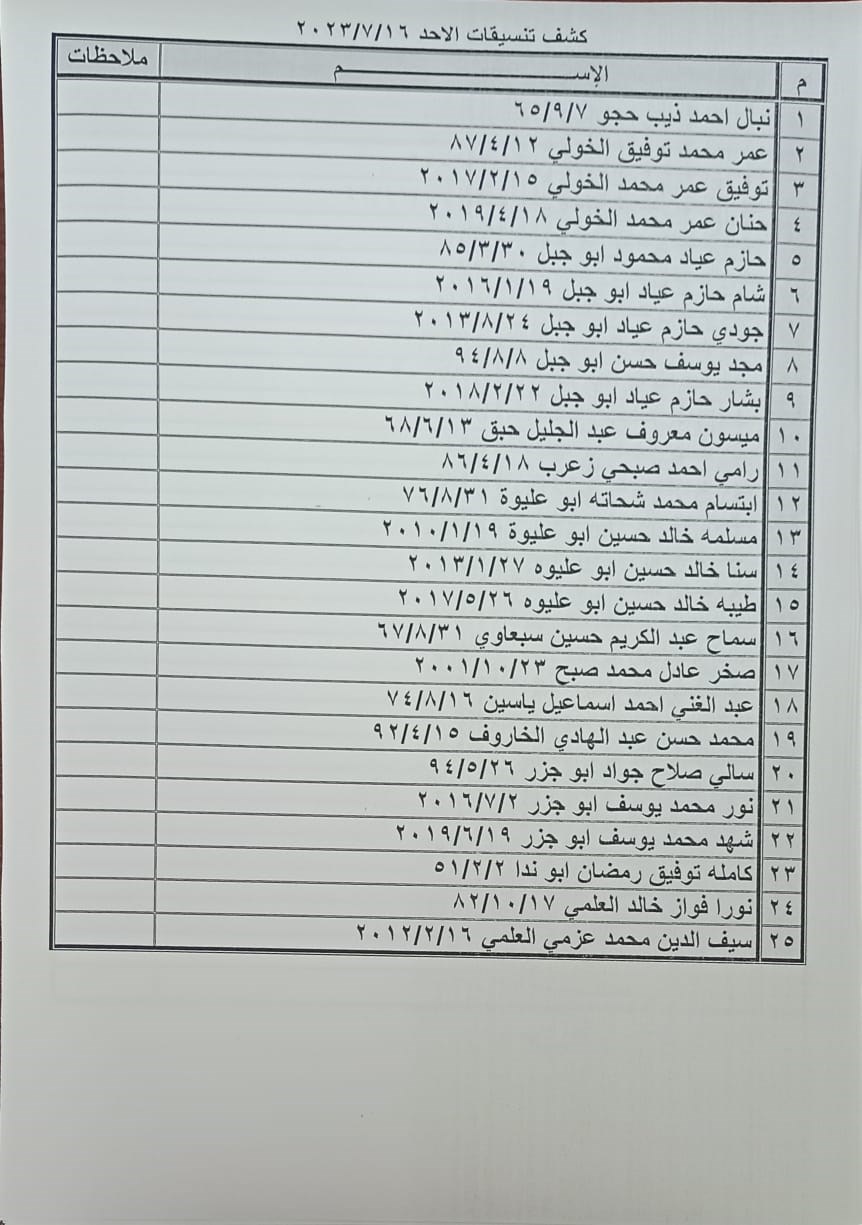 كشف تنسيقات الاحد ٢٠٢٣/٧/١٦
م الإســـــم ملاحظات
١ نبال احمد ذيب حجو ٦٥/٩/٧
٢ عمر محمد توفيق الخولي ٨٧/٤/١٢
٣ توفيق عمر محمد الخولي ٢٠١٧/٢/١٥
٤ حنان عمر محمد الخولي ٢٠١٩/٤/١٨
٥ حازم عياد محمود ابو جبل ٨٥/٣/٣٠
٦ شام حازم عياد ابو جبل ٢٠١٦/١/١٩
٧ جودي حازم عياد ابو جبل ٢٠١٣/٨/٢٤
٨ مجد يوسف حسن ابو جبل ٩٤/٨/٨
٩ بشار حازم عياد ابو جبل ٢٠١٨/٢/٢٢
١٠ ميسون معروف عبد الجليل حبق ٦٨/٦/١٣
١١ رامي احمد صبحي زعرب ٨٦/٤/١٨
١٢ ابتسام محمد شحاته ابو عليوة ٧٦/٨/٣١
١٣ مسلمه خالد حسين ابو عليوة ٢٠١٠/١/١٩
١٤ سنا خالد حسين ابو عليوه ٢٠١٣/١/٢٧
١٥ طيبه خالد حسين ابو عليوه ٢٠١٧/٥/٢٦
١٦ سماح عبد الكريم حسين سبعاوي ٦٧/٨/٣١
١٧ صخر عادل محمد صبح ٢٠٠١/١٠/٢٣
١٨ عبد الغني احمد اسماعيل ياسين ٧٤/٨/١٦
١٩ محمد حسن عبد الهادي الخاروف ٩٢/٤/١٥
٢٠ سالي صلاح جواد ابو جزر ٩٤/٥/٢٦
٢١ نور محمد يوسف ابو جزر ٢٠١٦/٧/٢
٢٢ شهد محمد يوسف ابو جزر ٢٠١٩/٦/١٩
٢٣ كامله توفيق رمضان ابو ندا ٥١/٢/٢
٢٤ نورا فواز خالد العلمي ٨٢/١٠/١٧
٢٥ سيف الدين محمد عزمي العلمي ٢٠١٢/٢/١٦